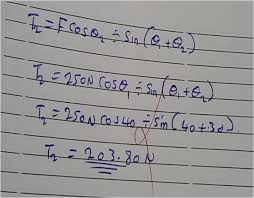 T₂ = F cos θ₂ ÷ Sin (θ₁ + θ₂)
T₂ = 250N cos θ₁ ÷ Sin (θ₁ + θ₂)
T₂ = 250N cos 40 ÷ Sin (40 + 30)
T₂ = 203.80N